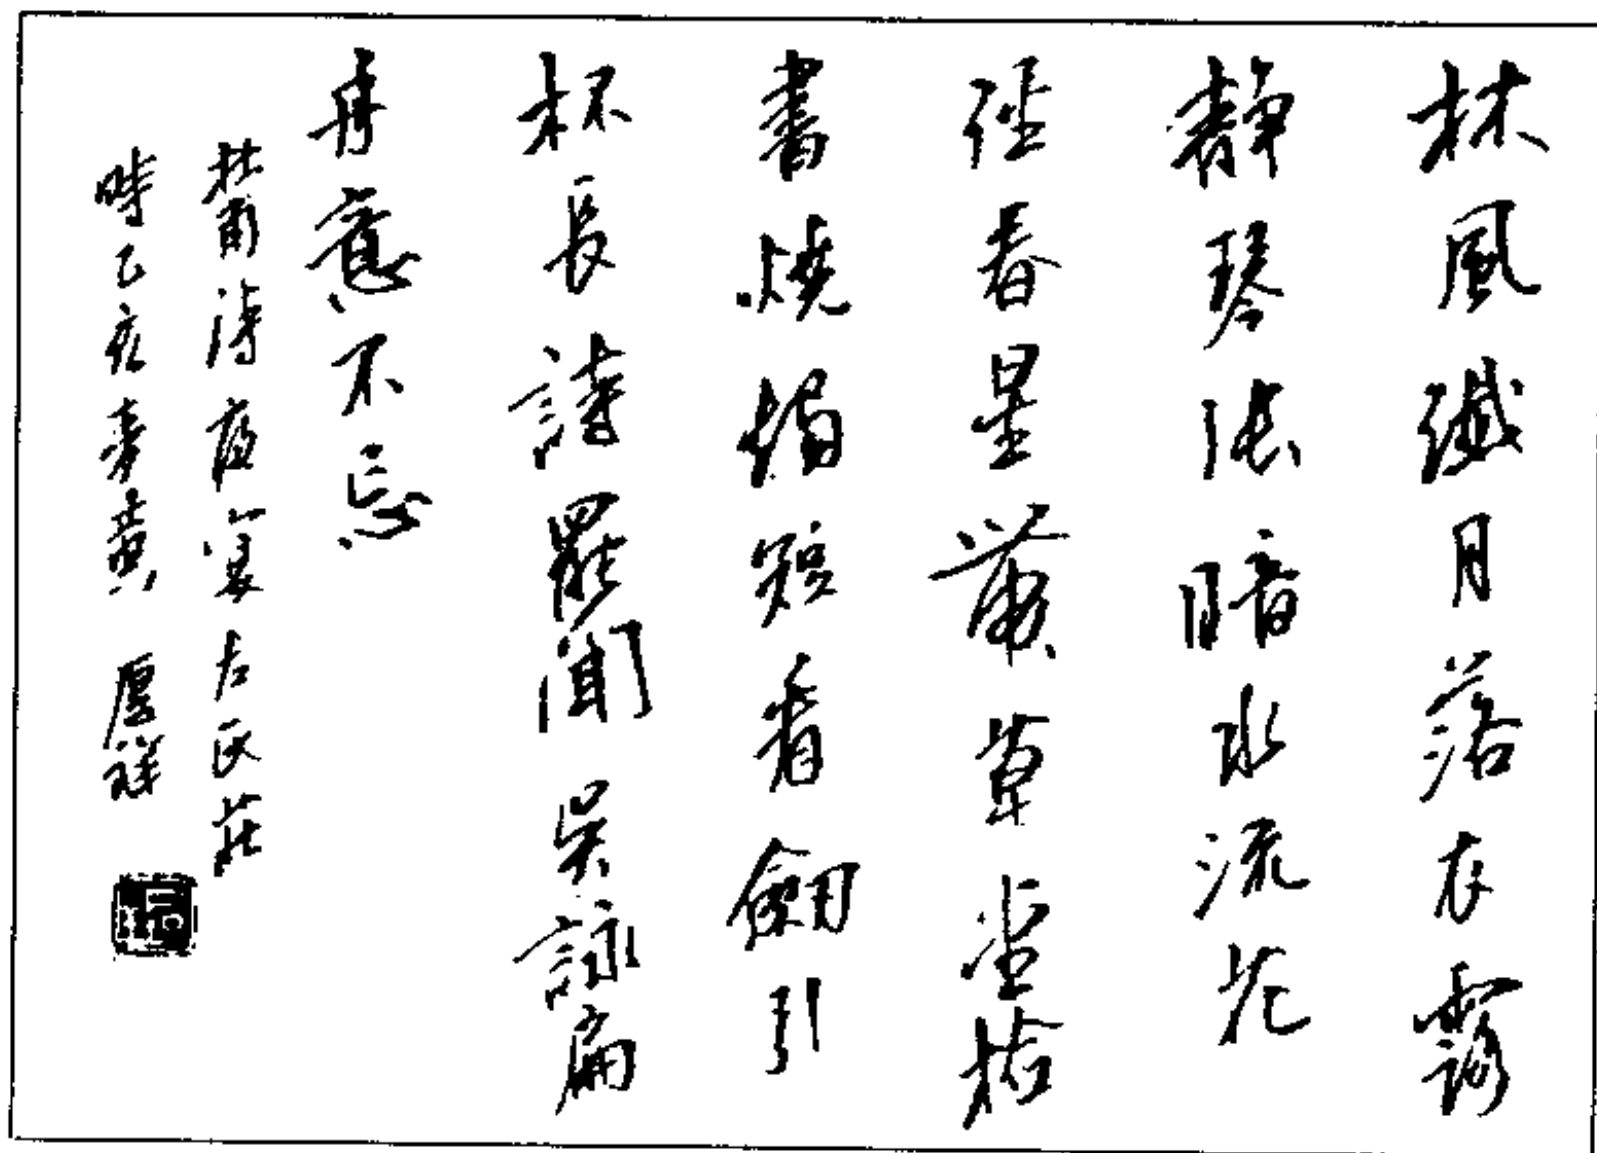 林風纖月落衣露
靜琴張暗水流花
徑春星帶草堂檢
書燒燭短看劍引
杯長詩罷聞吳詠扁
舟意不忘
杜甫詩夜宴左氏莊
時乙亥黃厚祥